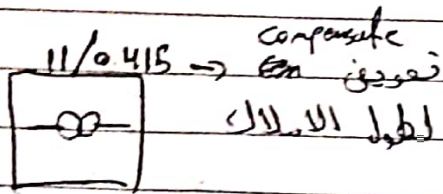 11/0.415 → compensate
تعويض
لطول الاسلاك